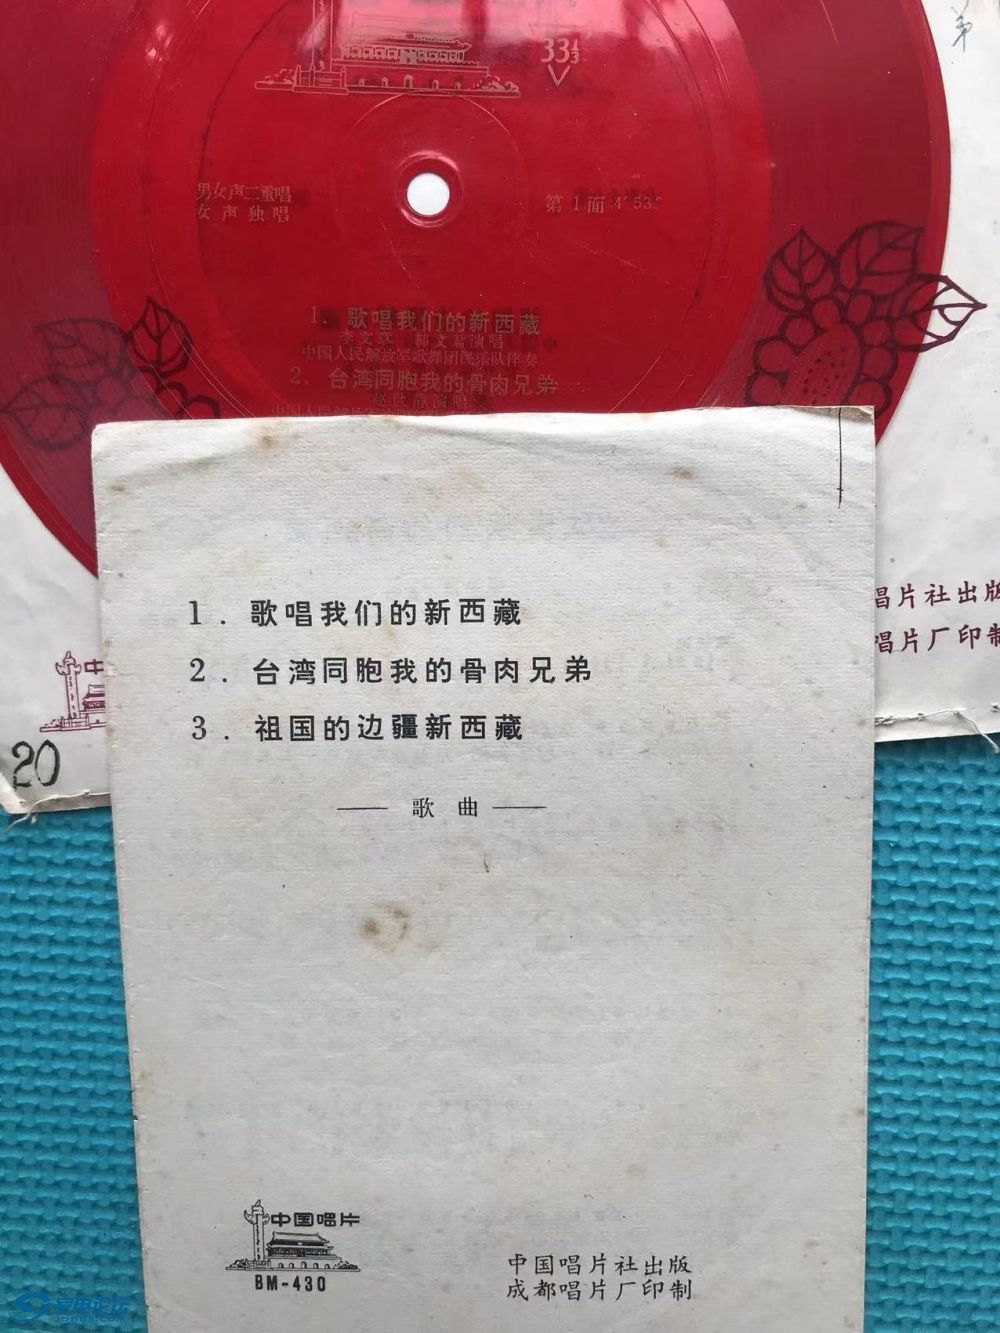 第
33⅓
男女声二重唱
女声独唱
第1面 4′53″
1. 歌唱我们的新西藏
李文章 韩文君演唱
中国人民解放军歌舞团民乐队伴奏
2. 台湾同胞我的骨肉兄弟
演唱
唱片社出版
唱片厂印制
中
20
1. 歌唱我们的新西藏
2. 台湾同胞我的骨肉兄弟
3. 祖国的边疆新西藏
—— 歌曲 ——
中国唱片
BM-430
中国唱片社出版
成都唱片厂印制